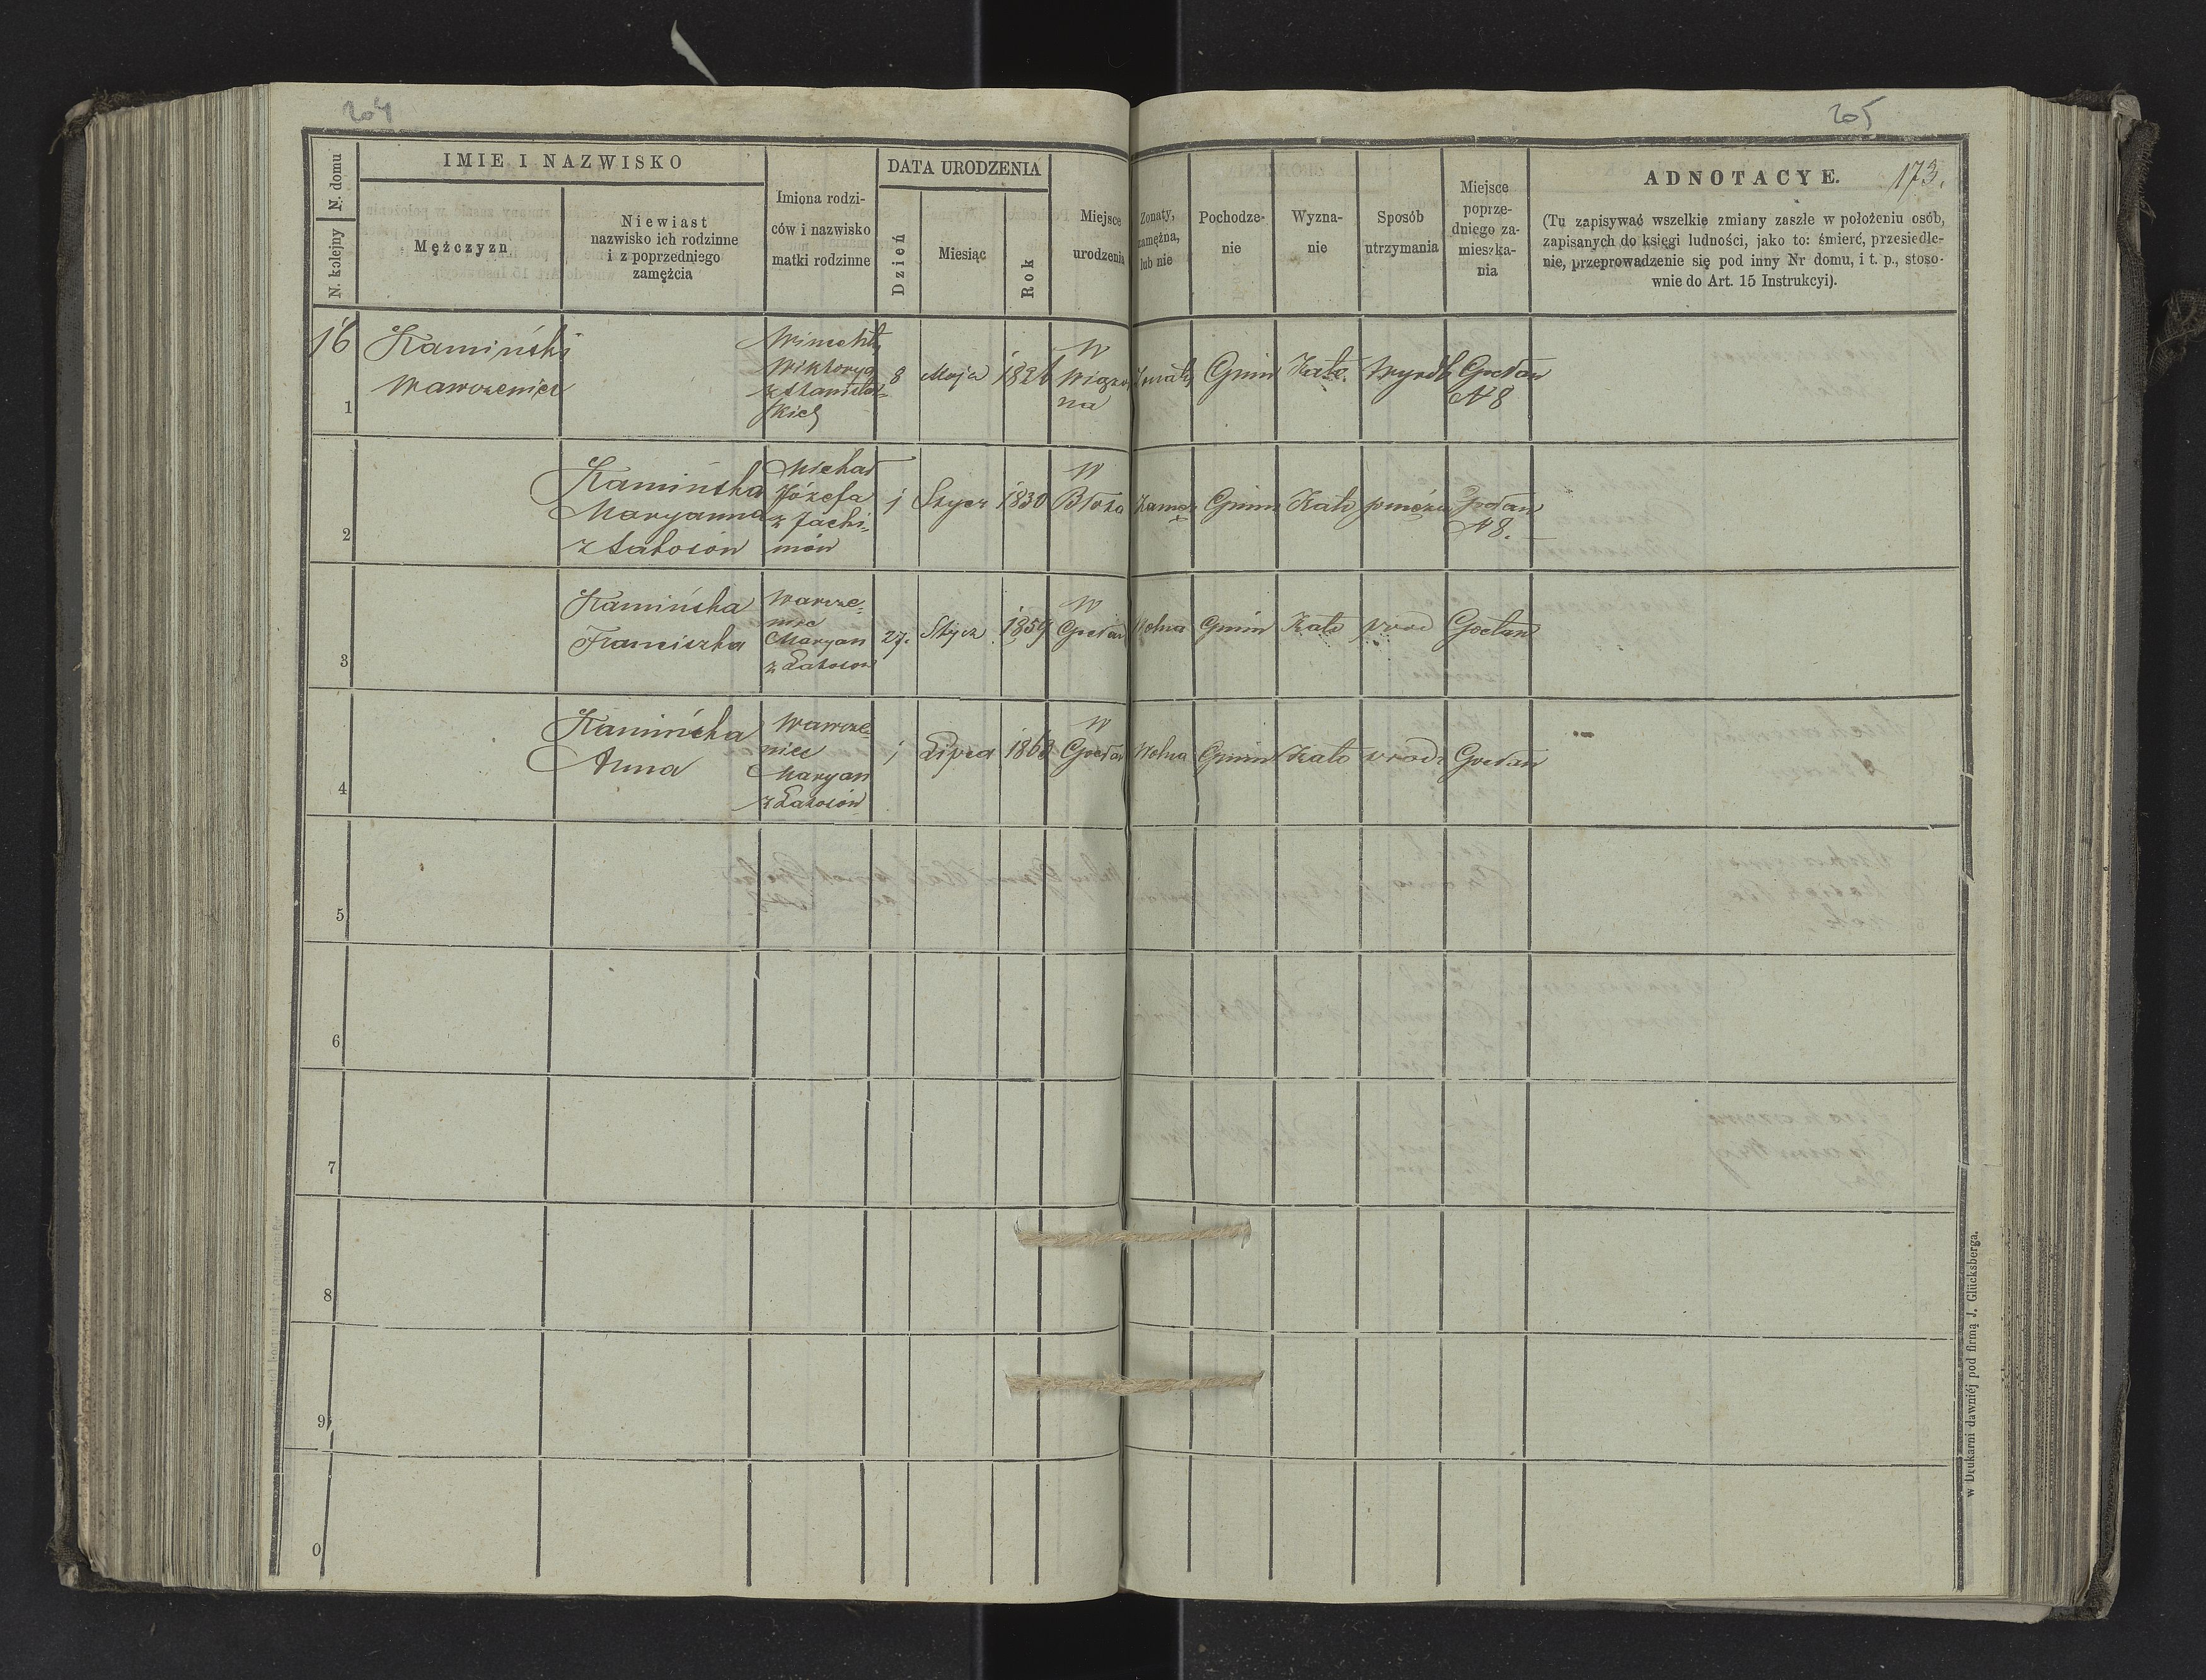 204
205
173.
N. domu
N. kolejny
IMIE I NAZWISKO
Mężczyzn
Niewiast
nazwisko ich rodzinne
i z poprzedniego
zamężcia
Imiona rodzi-
ców i nazwisko
matki rodzinne
DATA URODZENIA
Dzień
Miesiąc
Rok
Miejsce
urodzenia
Żonaty,
zamężna,
lub nie
Pochodze-
nie
Wyzna-
nie
Sposób
utrzymania
Miejsce
poprze-
dniego za-
mieszka-
nia
ADNOTACYE.
(Tu zapisywać wszelkie zmiany zaszłe w położeniu osób,
zapisanych do księgi ludności, jako to: śmierć, przesiedle-
nie, przeprowadzenie się pod inny Nr domu, i t. p., stoso-
wnie do Art. 15 Instrukcyi).
16
1
Kamiński
Wawrzeniec
Wiktorya
8
Maja
W
Gmin
Kato.
Wyrob
Gocław
N 8
2
Kamińska
Maryanna
Michał
Józefa
z Jachi-
mów
1
Stycz
1830
W
Błota
Zamęż
Gmin
Kato
Gocław
N 8.
3
Kamińska
Franciszka
Wawrze-
niec
Maryan
z Łatosów
27.
Stycz
1859
W
Gocław
Wolna
Gmin
Kato
Gocław
4
Kamińska
Anna
Wawrze-
niec
Maryan
z Łatosów
1
Lipca
W
Gocław
Wolna
Gmin
Kato
Gocław
5
6
7
8
9
0
w Drukarni dawniéj pod firmą J. Glücksberga.